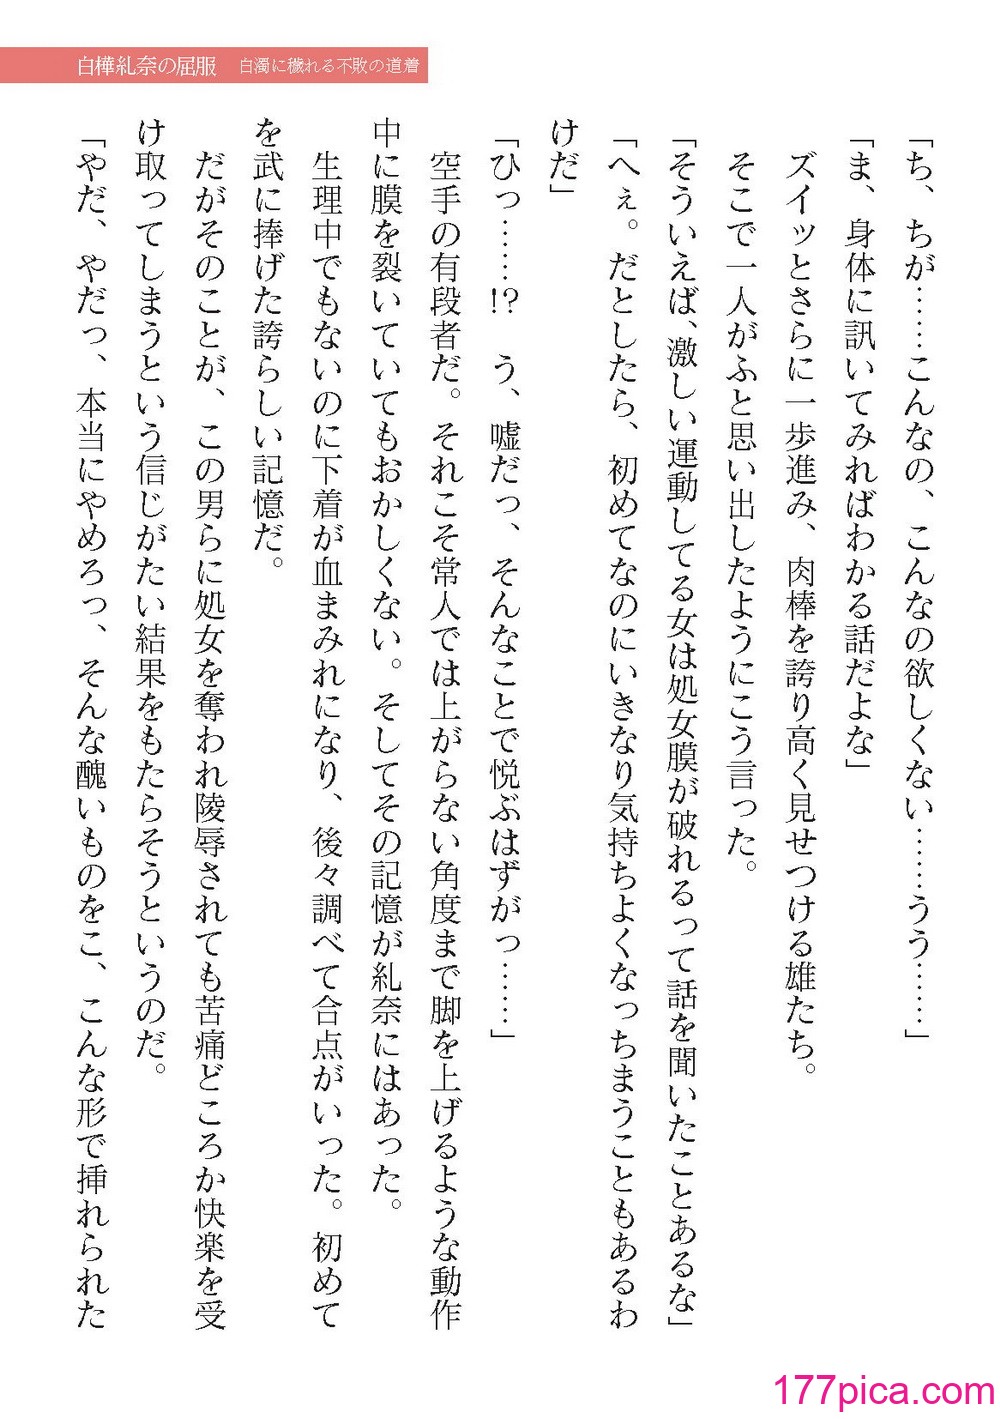 白樺糺奈の屈服　白濁に穢れる不敗の道着
「ち、ちが……こんなの、こんなの欲しくない……うう……」
「ま、身体に訊いてみればわかる話だよな」
ズイッとさらに一歩進み、肉棒を誇り高く見せつける雄たち。
そこで一人がふと思い出したようにこう言った。
「そういえば、激しい運動してる女は処女膜が破れるって話を聞いたことあるな」
「へぇ。だとしたら、初めてなのにいきなり気持ちよくなっちまうこともあるわ
けだ」
「ひっ……!?　う、嘘だっ、そんなことで悦ぶはずがっ……」
空手の有段者だ。それこそ常人では上がらない角度まで脚を上げるような動作
中に膜を裂いていてもおかしくない。そしてその記憶が糺奈にはあった。
生理中でもないのに下着が血まみれになり、後々調べて合点がいった。初めて
を武に捧げた誇らしい記憶だ。
だがそのことが、この男らに処女を奪われ陵辱されても苦痛どころか快楽を受
け取ってしまうという信じがたい結果をもたらそうというのだ。
「やだ、やだっ、本当にやめろっ、そんな醜いものをこ、こんな形で挿れられた
177pica.com